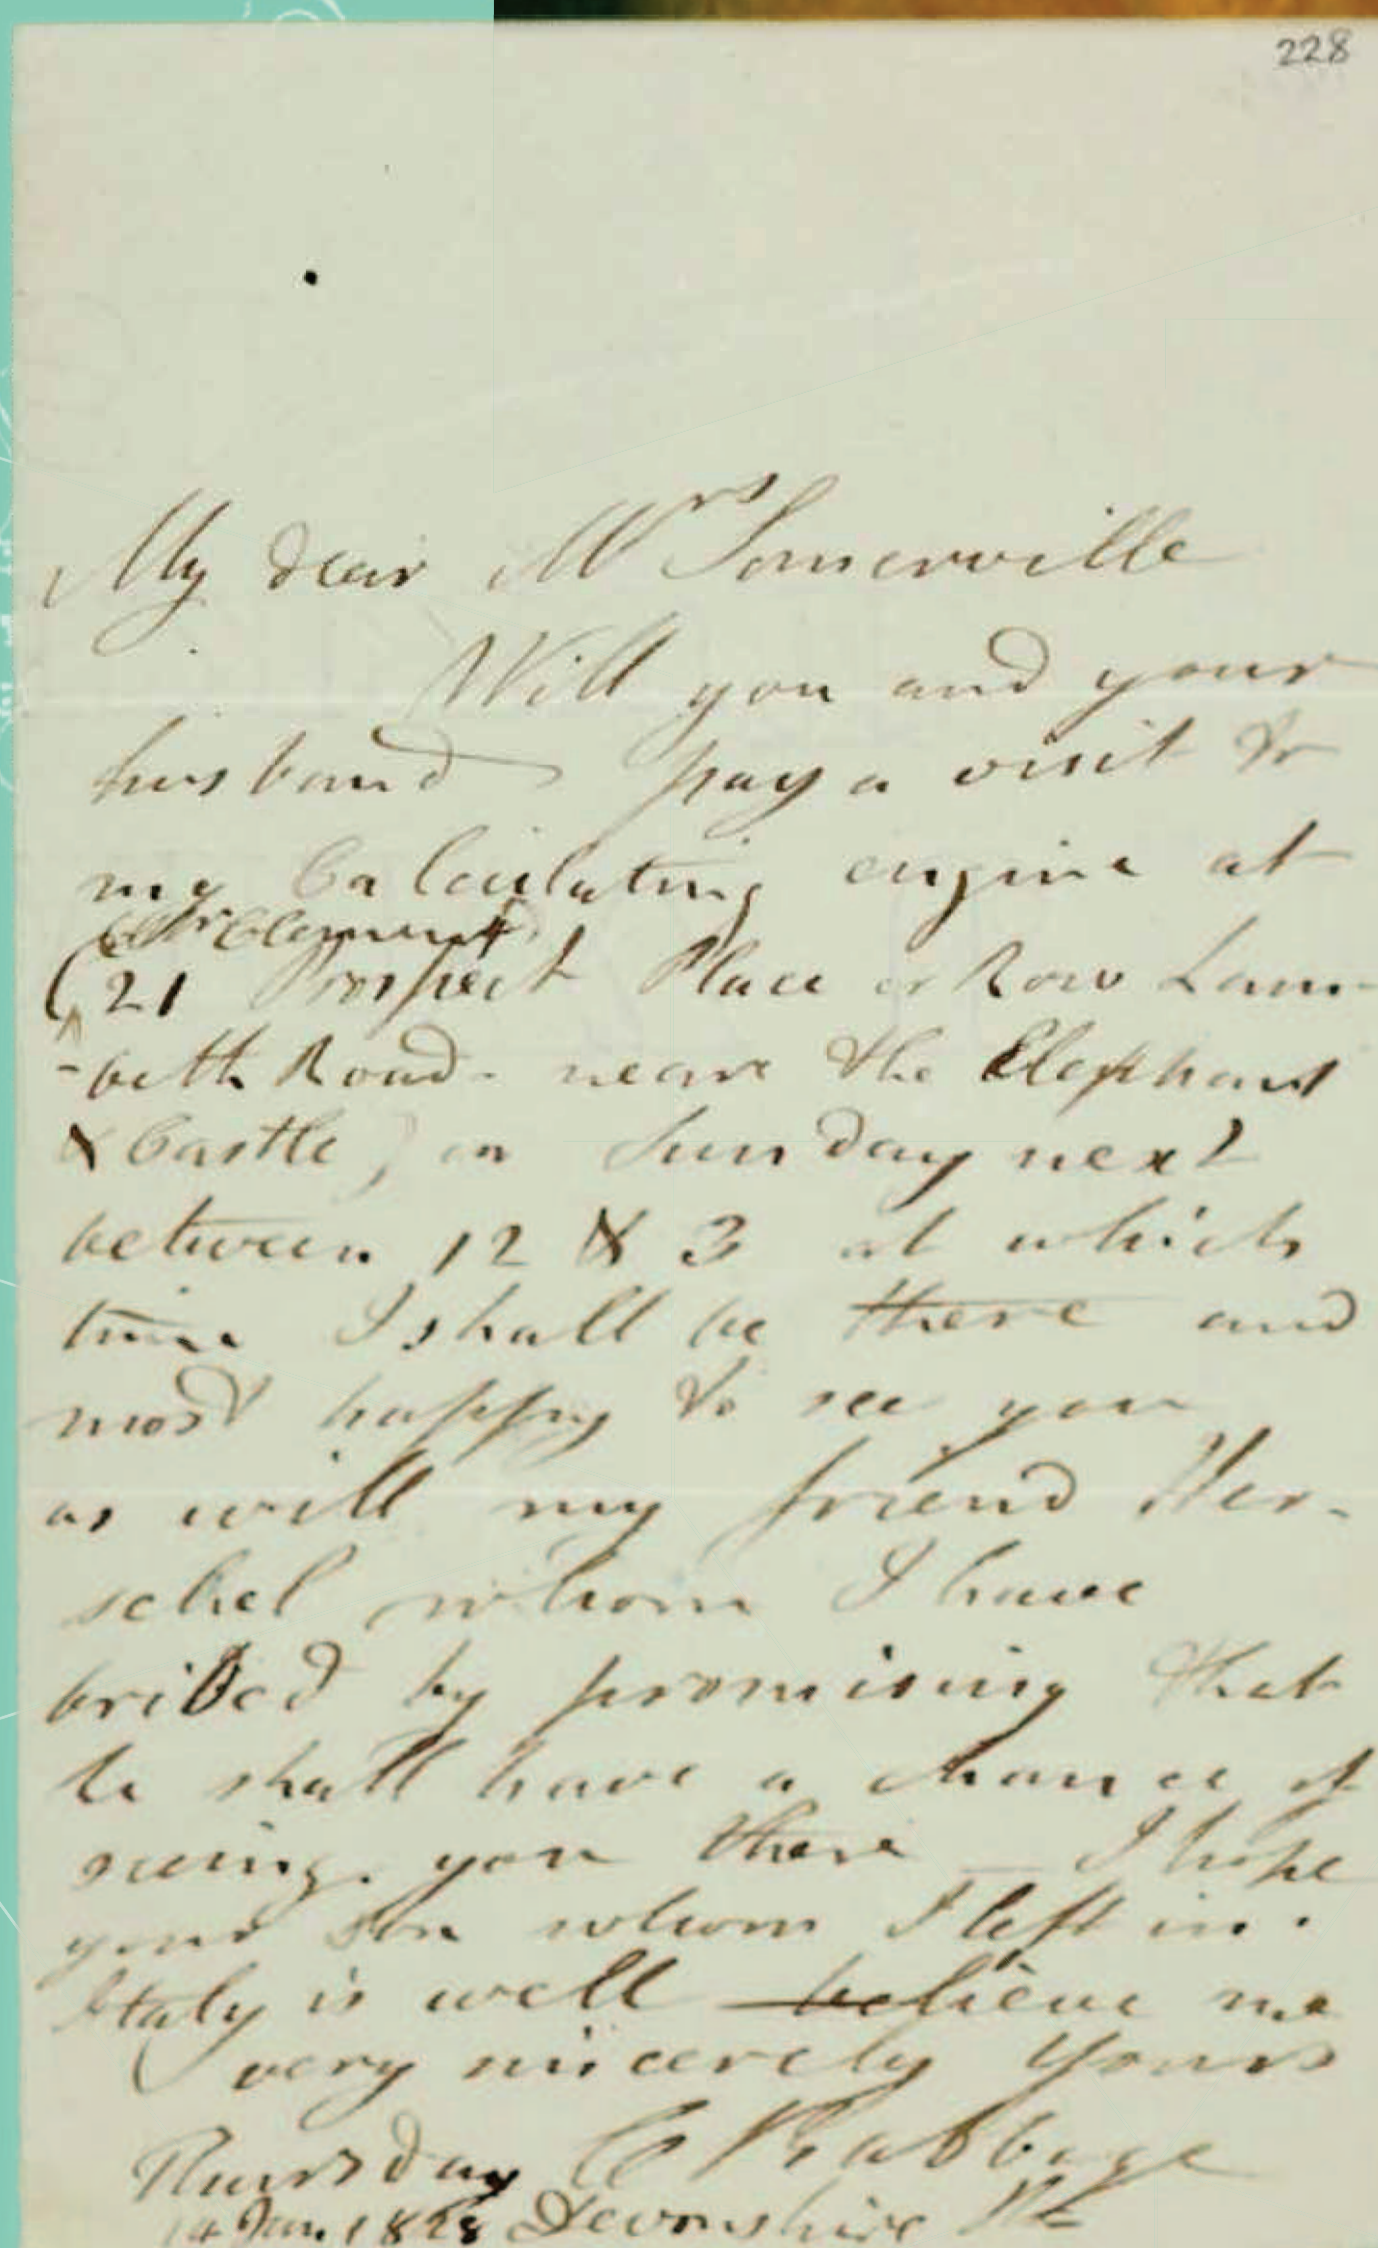 228
My dear Mrs Somerville
Will you and your
husband pay a visit to
my Calculating engine at
Mr Clement
(21 Prospect Place or Row Lam-
-beth Road - near the Elephant
& Castle) on Sunday next
between 12 & 3 at which
time I shall be there and
most happy to see you
as will my friend Her-
schel whom I have
bribed by promising that
he shall have a chance of
seeing you there _ I hope
your son whom I left in
Italy is well believe me
very sincerely yours
Thursday C Babbage
14 Jan. Devonshire St